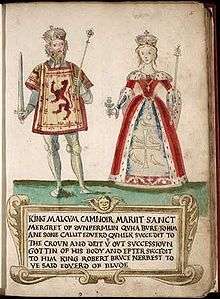 KING MALCUM CAMNOIR MARIIT SANCT
MERGRET OF DVNFERMLIN QVHA BVRE TO HIM
ANE SONE CALLIT EDVERD QVHILK SVCCEDIT TO
THE CROVN AND DEIT VOVT SVCCESSIOVN
GOTTIN OF HIS BODY AND EFTER SVCCEDIT
TO HIM KING ROBERT BRVCE NERREST TO
YE SAID EDVERD OF BLVDE